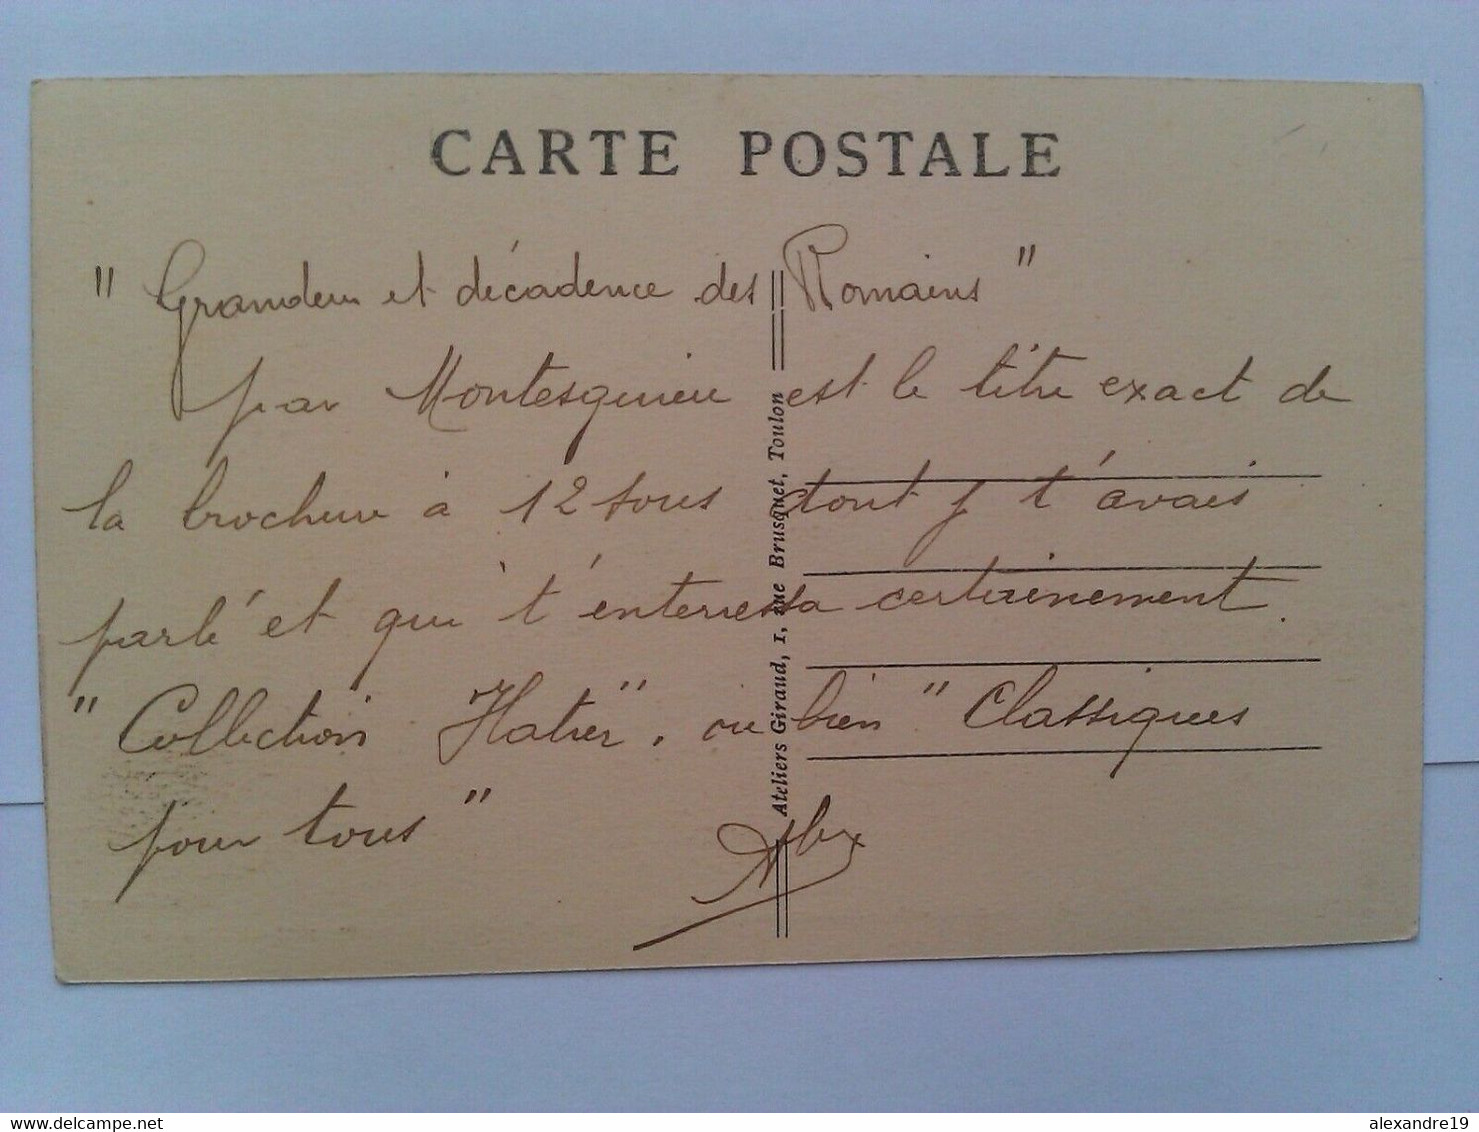 CARTE POSTALE
" Grandeur et décadence des Romains "
par Montesquieu est le titre exact de
la brochure à 12 sous dont j t'avais
parlé et qui t'enteressa certainement.
" Collection Hatier", ou bien " Classiques
pour tous "
Alex
Ateliers Giraud, 1, rue Brusquet, Toulon
delcampe.net
alexandre19